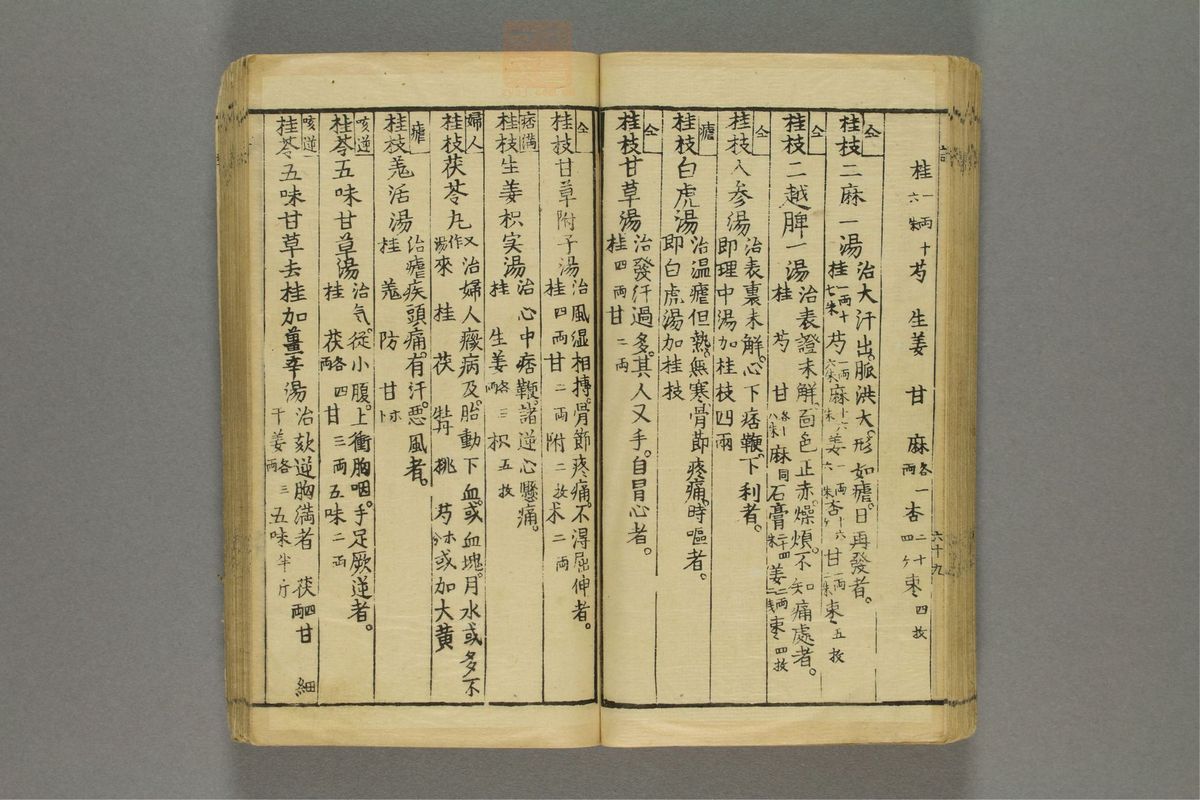 桂一両六朱十芍生姜甘麻各一両杏二十四ケ棗四枚
仝
桂枝二麻一湯
治大汗出。脈洪大。形如瘧。日再發者。
桂一両十七朱芍一両六朱麻十六朱姜一両六朱杏十六ケ甘一両二朱棗五枚
仝
桂枝二越脾一湯
治表證未解。面色正赤。燥煩。不知痛處者。
桂芍甘各十八朱麻同石膏二十四朱姜一両二戋棗四枚
仝
桂枝人参湯
治表裏未解。心下痞鞕。下利者。
即理中湯加桂枝四兩
瘧
桂枝白虎湯
治温瘧但熱。無寒。骨節疼痛。時嘔者。
即白虎湯加桂枝
仝
桂枝甘草湯
治發汗過多。其人叉手。自冒心者。
桂四両甘二両
六十九
仝
桂枝甘草附子湯
治風湿相搏。骨節疼痛。不得屈伸者。
桂四両甘二両附二枚朮二両
痞満
桂枝生姜枳实湯
治心中痞鞕。諸逆心懸痛。
桂生姜各三両枳五枚
婦人
桂枝茯苓丸
又作湯
治婦人癥病及。胎動下血。或血塊。月水或多不
來桂茯牡桃芍ホ分或加大黄
瘧
桂枝羗活湯
治瘧疾頭痛。有汗。悪風者。
桂羗防甘ホ卜
咳逆
桂苓五味甘草湯
治気。従小腹。上衝胸咽。手足厥逆者。
桂茯各四両甘三両五味二両
咳逆
桂苓五味甘草去桂加薑辛湯
治欬逆胸満者茯四両甘
干姜各三両五味半斤細